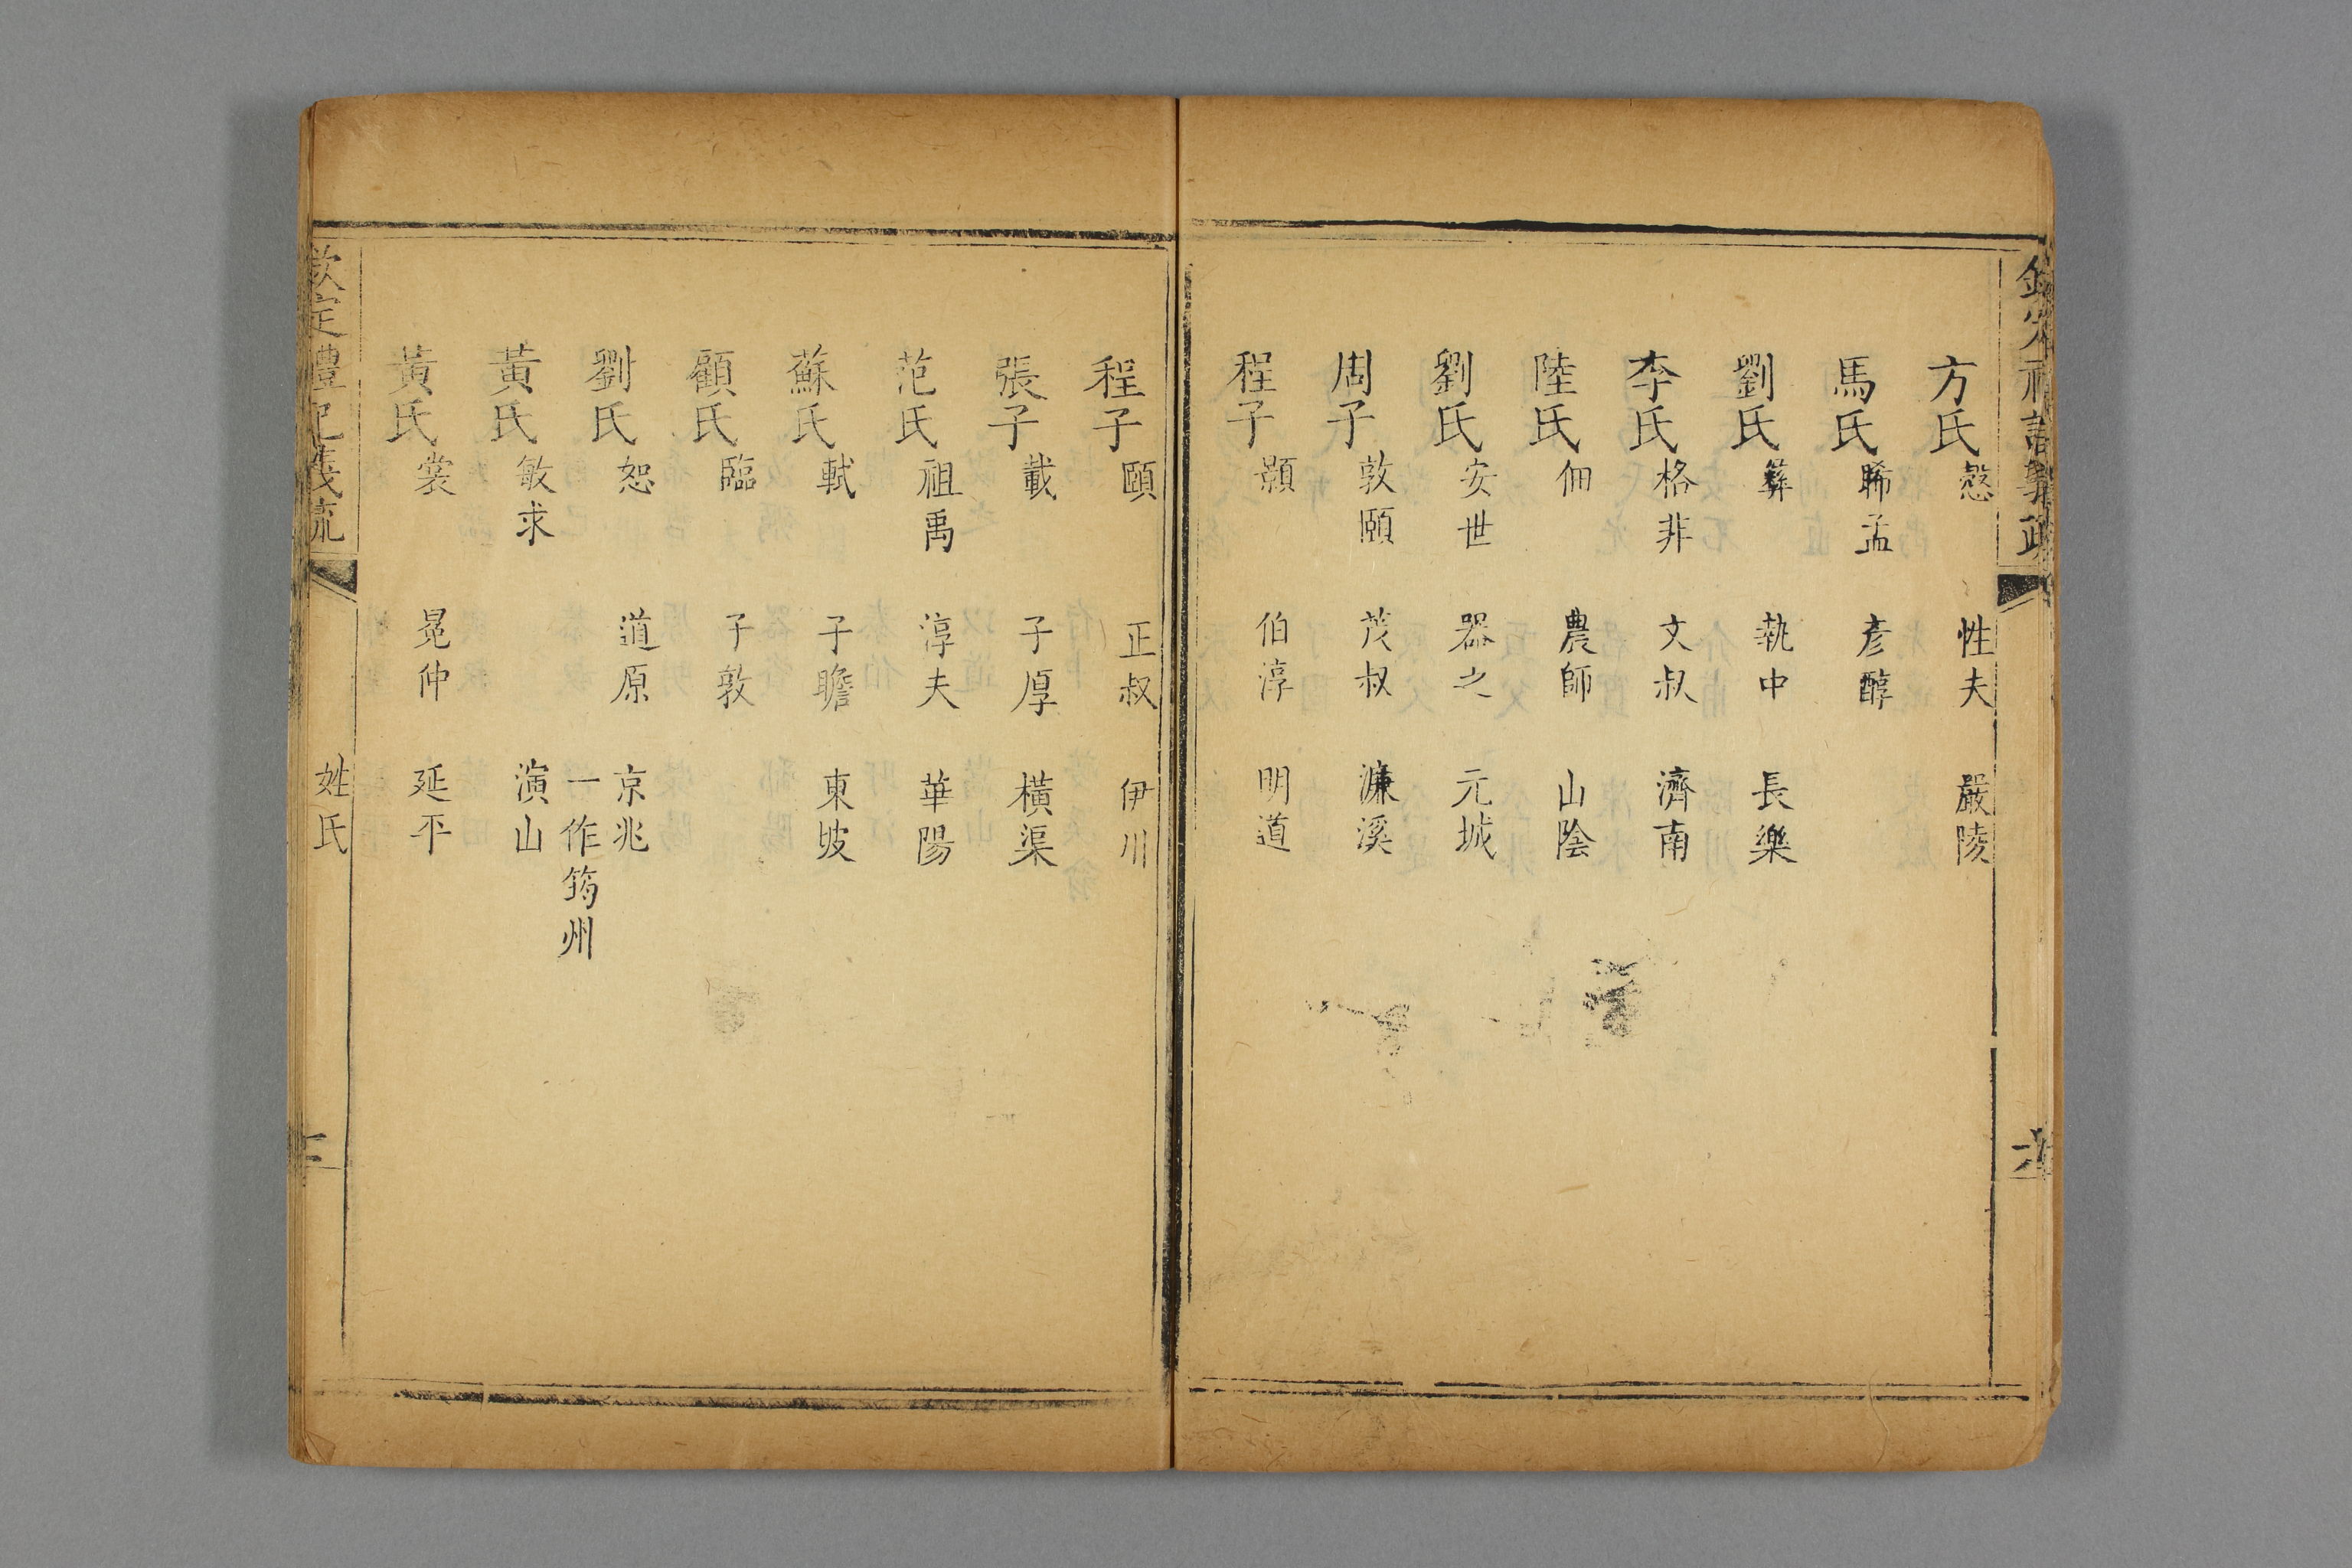 方氏 慤 性夫 嚴陵
馬氏 睎孟 彥醇
劉氏 彝 執中 長樂
李氏 格非 文叔 濟南
陸氏 佃 農師 山陰
劉氏 安世 器之 元城
周子 敦頤 茂叔 濂溪
程子 顥 伯淳 明道
程子 頤 正叔 伊川
張子 載 子厚 橫渠
范氏 祖禹 淳夫 華陽
蘇氏 軾 子瞻 東坡
顧氏 臨 子敦
劉氏 恕 道原 京兆
一作筠州
黃氏 敏求 演山
黃氏 裳 冕仲 延平
欽定禮記義疏 姓氏